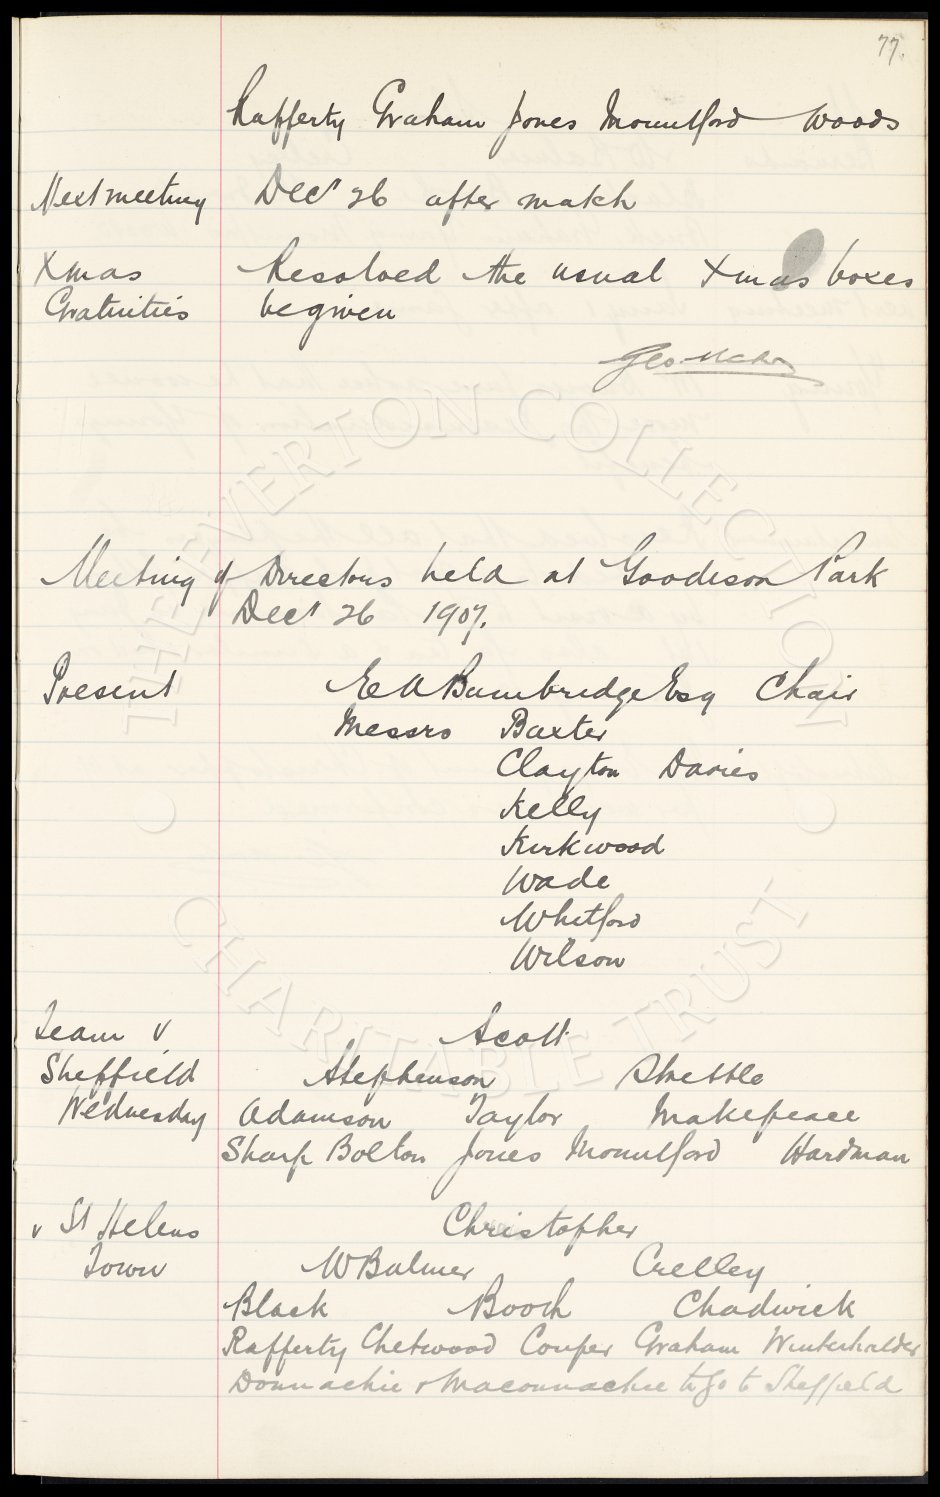 77.
Rafferty Graham Jones Mountford Woods
Next meeting Decr 26 after match
Xmas Resolved the usual Xmas boxes
Gratuities be given
Geo Mahon
Meeting of Directors held at Goodison Park
Decr 26 1907.
Present E A Bainbridge Esq Chair
Messrs Baxter
Clayton Davies
Kelly
Kirkwood
Wade
Whitford
Wilson
Team v Scott
Sheffield Stephenson Strettle
Wednesday Adamson Taylor Makepeace
Sharp Bolton Jones Mountford Hardman
v St Helens Christopher
Town W Balmer Crelley
Black Booth Chadwick
Rafferty Chetwood Couper Graham Winterhalder
Donnachie & Maconnachie to go to Sheffield
THE EVERTON COLLECTION
CHARITABLE TRUST